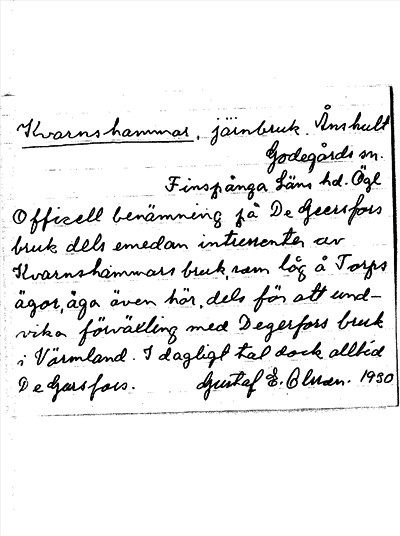 Kvarnshammar, järnbruk. Ånshult
Godegårds sn.
Finspånga Läns hd. Ögl
Officell benämning på De Geersfors
bruk dels emedan intressenter av
Kvarnshammars bruk, som låg å Torps
ägor, äga även här, dels för att und-
vika förväxling med Degerfors bruk
i Värmland. I dagligt tal dock alltid
De Geersfors. Gustaf E. Olsson. 1930